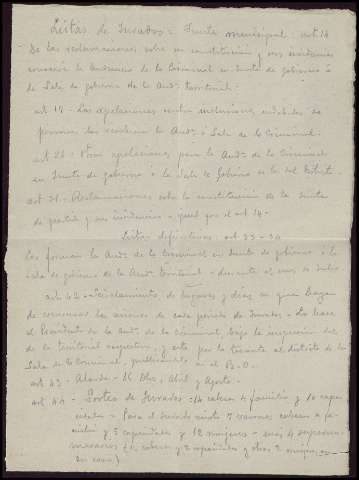 Listas de Jurados = Junta municipal: art 14
De las reclamaciones sobre su constitución y sus incidencias
conocerá la Audiencia de lo Criminal en Junta de gobierno ó
la Sala de gobierno de la Aud.ª territorial.
art 17 - Las apelaciones contra inclusiones indebidas de
personas las resolverá la Aud.ª ó Sala de lo Criminal.
art 21 - Para apelaciones, pasa la Aud.ª de lo Criminal
en Junta de gobierno ó la Sala de Gobierno de la del
art. 31 - Reclamaciones sobre la constitución de la Junta
de partido y sus incidencias - igual que el art 14 -
Listas definitivas: art 33 - 34
Las forman la Aud. de lo Criminal en Junta de gobierno ó la
Sala de gobierno de la Aud. territorial - durante el mes de Julio
art 42 - Señalamiento de lugares y días en que hayan
de comenzar las sesiones de cada periodo de Jurados. - Lo hace
el Presidente de la Aud.ª de lo Criminal, bajo la inspección del
de la territorial respectiva, y este por lo tocante al distrito de la
Sala de lo Criminal, publicándolo en el B.O.
art 43 - Alarde - Dbre, Abril y Agosto.
art 44 - Sorteo de Jurados = 14 cabezas de familia y 10 capa-
cidades - Para el Jurado mixto 7 varones cabezas de fa-
milia y 5 capacidades y 12 mujeres - más 4 supernu-
merarios (2 cabezas y 2 capacidades y otras 2 mujeres, en
su caso)